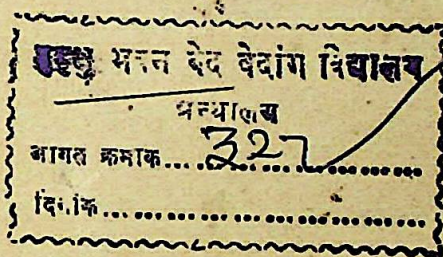 मुमुक्षु भवन वेद वेदांग विद्यालय
ग्रन्थालय
आगत क्रमाक....327....................
दिनांक................................